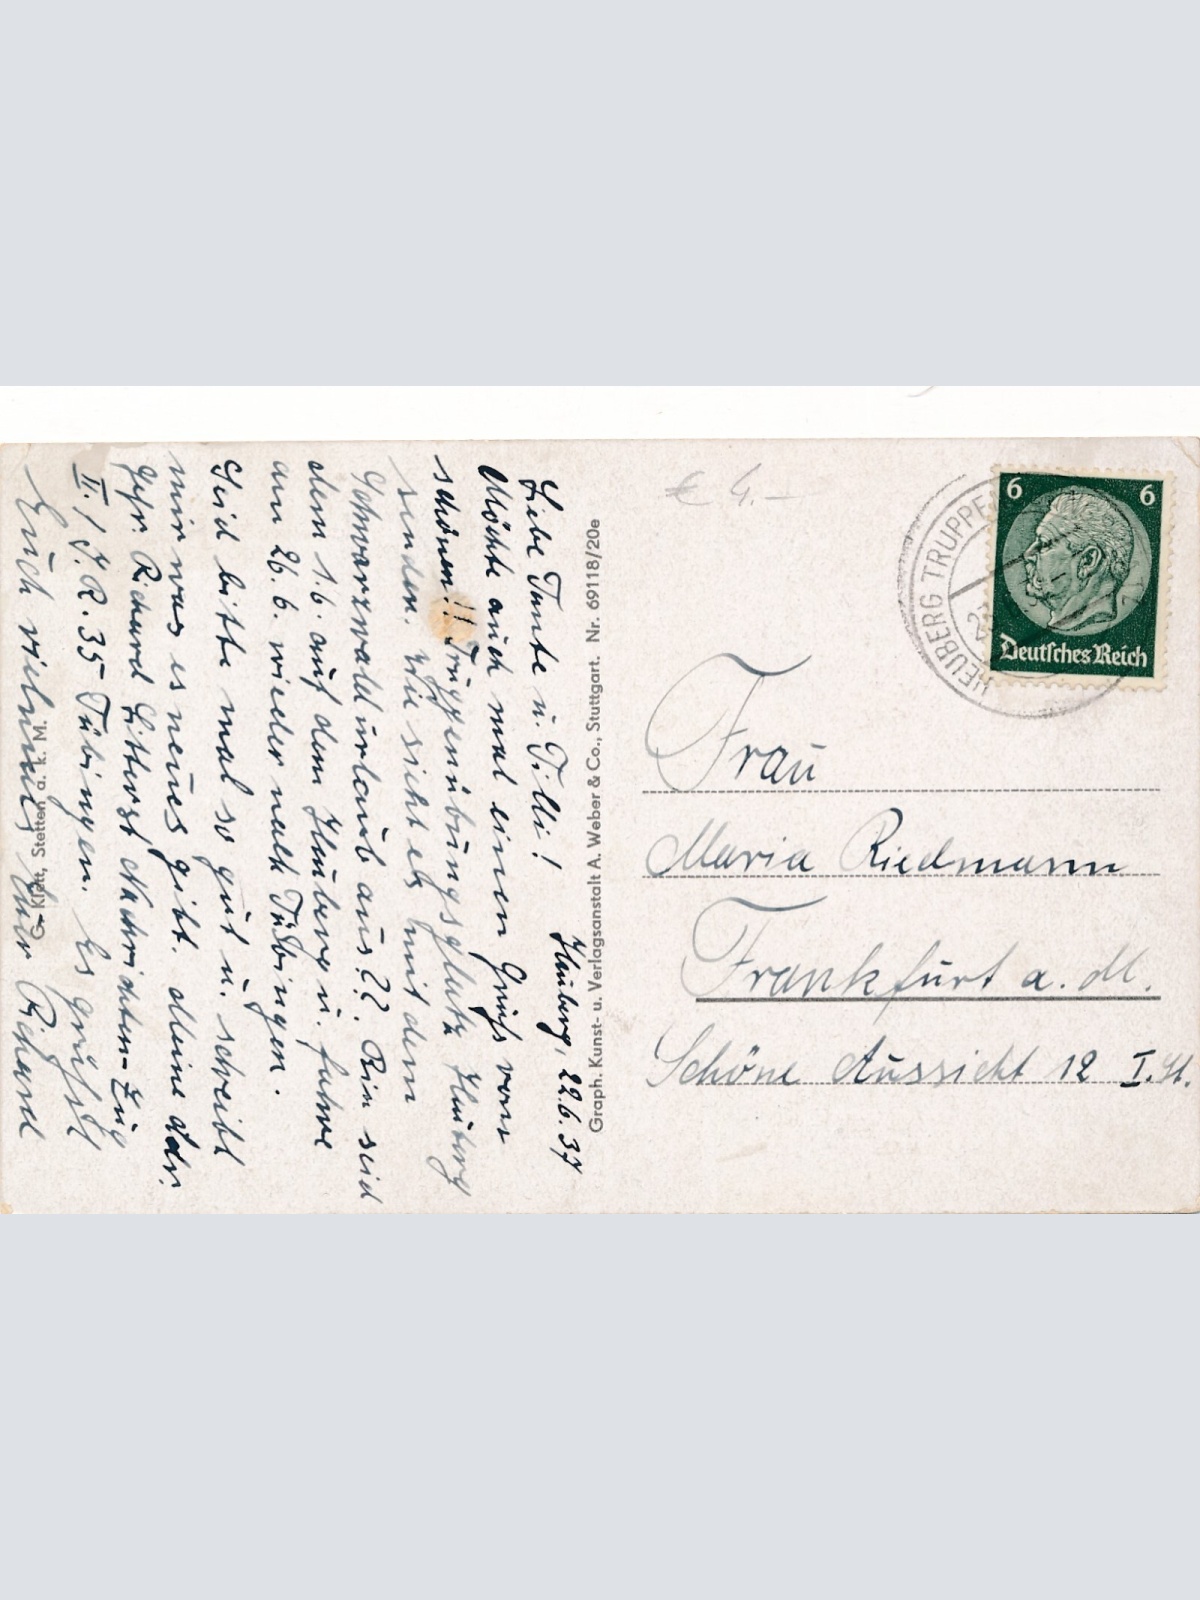 Heuberg, 22.6.37
Liebe Tante u. Tilli!
Möchte auch mal einen Gruß vom
schönen!! Truppenübungsplatz Heuberg
senden. Wie sieht es mit dem
Schwarzwaldurlaub aus??. Bin seid
dem 1.6. auf dem Heuberg u. fahre
am 26.6. wieder nach Tübingen.
Seid bitte mal so gut u. schreibt
mir was es neues gibt. Meine Adr:
Gefr. Richard Nachrichten-Zug
II./I.R.35 Tübingen. Es grüßt
Euch vielmals Euer Richard
G. Klett, Stetten a. k. M.
Graph. Kunst- u. Verlagsanstalt A. Weber & Co., Stuttgart. Nr. 69118/20e
€ 4.-
HEUBERG TRUPPE
6 6
Deutsches Reich
Frau
Maria Riedmann
Frankfurt a. M.
Schöne Aussicht 12 I.St.